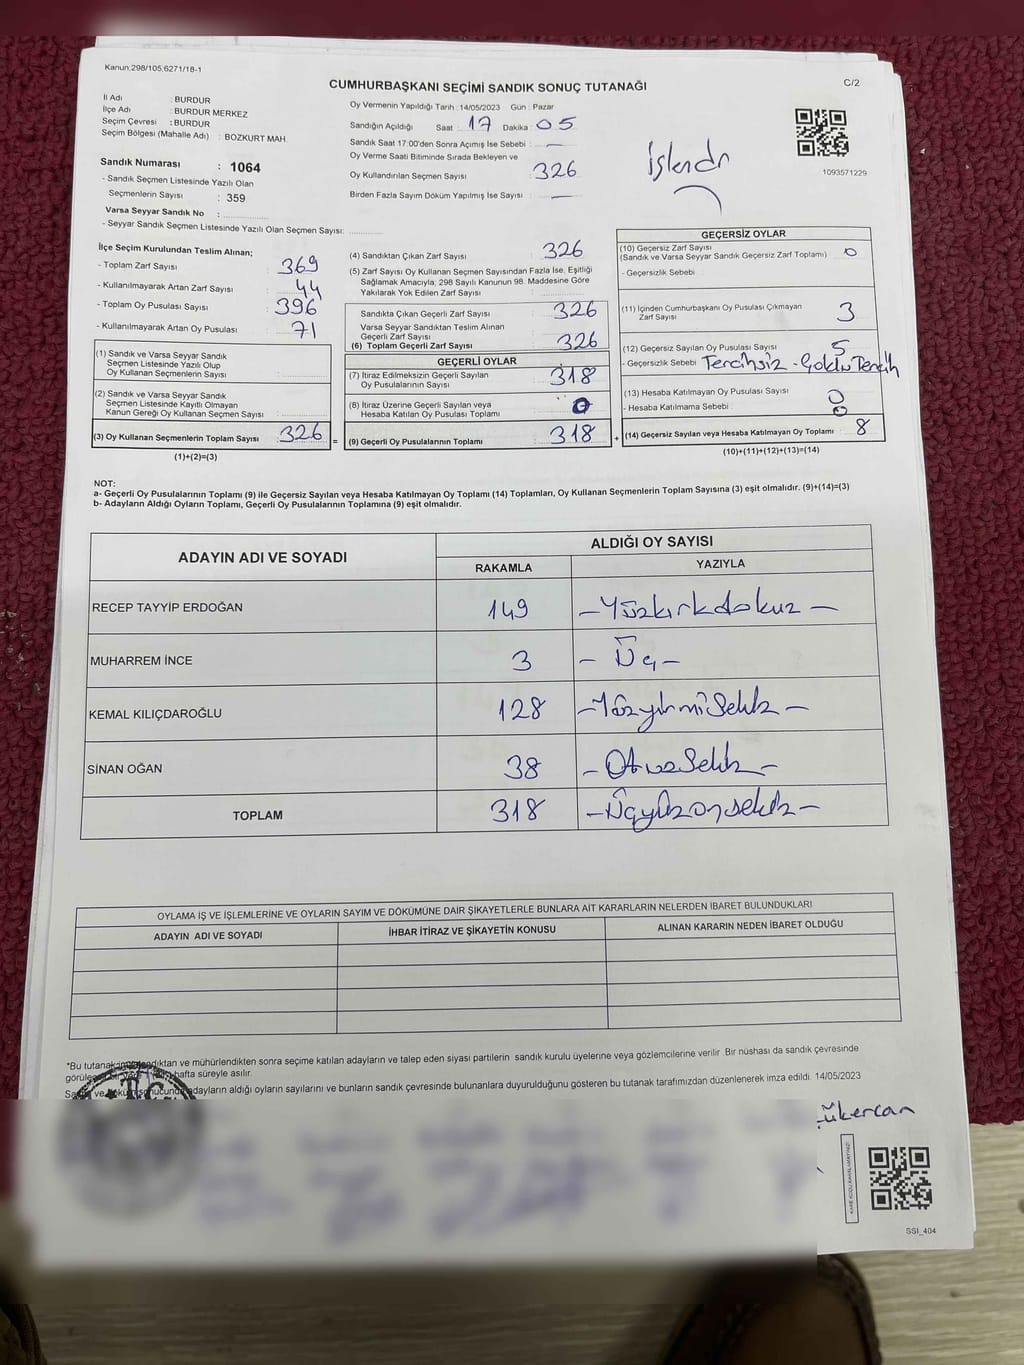 Kanun:298/105,6271/18-1
CUMHURBAŞKANI SEÇİMİ SANDIK SONUÇ TUTANAĞI
C/2
İl Adı : BURDUR
İlçe Adı : BURDUR MERKEZ
Seçim Çevresi : BURDUR
Seçim Bölgesi (Mahalle Adı) : BOZKURT MAH.
Sandık Numarası : 1064
- Sandık Seçmen Listesinde Yazılı Olan
Seçmenlerin Sayısı : 359
Varsa Seyyar Sandık No :
- Seyyar Sandık Seçmen Listesinde Yazılı Olan Seçmen Sayısı:
Oy Vermenin Yapıldığı Tarih :14/05/2023 Gün : Pazar
Sandığın Açıldığı Saat : 17 Dakika : 05
Sandık Saat 17:00'den Sonra Açımış İse Sebebi : —
Oy Verme Saati Bitiminde Sırada Bekleyen ve
Oy Kullandırılan Seçmen Sayısı : 326
Birden Fazla Sayım Döküm Yapılmış İse Sayısı : —
İşlendi
1093571229
İlçe Seçim Kurulundan Teslim Alınan;
- Toplam Zarf Sayısı : 369
- Kullanılmayarak Artan Zarf Sayısı : 44
- Toplam Oy Pusulası Sayısı : 396
- Kullanılmayarak Artan Oy Pusulası : 71
(1) Sandık ve Varsa Seyyar Sandık
Seçmen Listesinde Yazılı Olup
Oy Kullanan Seçmenlerin Sayısı :
(2) Sandık ve Varsa Seyyar Sandık
Seçmen Listesinde Kayıtlı Olmayan
Kanun Gereği Oy Kullanan Seçmen Sayısı :
(3) Oy Kullanan Seçmenlerin Toplam Sayısı : 326 =
(1)+(2)=(3)
(4) Sandıktan Çıkan Zarf Sayısı : 326
(5) Zarf Sayısı Oy Kullanan Seçmen Sayısından Fazla İse, Eşitliği
Sağlamak Amacıyla; 298 Sayılı Kanunun 98. Maddesine Göre
Yakılarak Yok Edilen Zarf Sayısı :
Sandıkta Çıkan Geçerli Zarf Sayısı : 326
Varsa Seyyar Sandıktan Teslim Alınan
Geçerli Zarf Sayısı :
(6) Toplam Geçerli Zarf Sayısı : 326
GEÇERLİ OYLAR
(7) İtiraz Edilmeksizin Geçerli Sayılan
Oy Pusulalarının Sayısı : 318
(8) İtiraz Üzerine Geçerli Sayılan veya
Hesaba Katılan Oy Pusulası Toplamı : 0
(9) Geçerli Oy Pusulalarının Toplamı : 318 +
GEÇERSİZ OYLAR
(10) Geçersiz Zarf Sayısı
(Sandık ve Varsa Seyyar Sandık Geçersiz Zarf Toplamı) : 0
- Geçersizlik Sebebi :
(11) İçinden Cumhurbaşkanı Oy Pusulası Çıkmayan
Zarf Sayısı : 3
(12) Geçersiz Sayılan Oy Pusulası Sayısı : 5
- Geçersizlik Sebebi : Tercihsiz - Çoklu Tercih
(13) Hesaba Katılmayan Oy Pusulası Sayısı : 0
- Hesaba Katılmama Sebebi : 0
(14) Geçersiz Sayılan veya Hesaba Katılmayan Oy Toplamı : 8
(10)+(11)+(12)+(13)=(14)
NOT:
a- Geçerli Oy Pusulalarının Toplamı (9) ile Geçersiz Sayılan veya Hesaba Katılmayan Oy Toplamı (14) Toplamları, Oy Kullanan Seçmenlerin Toplam Sayısına (3) eşit olmalıdır. (9)+(14)=(3)
b- Adayların Aldığı Oyların Toplamı, Geçerli Oy Pusulalarının Toplamına (9) eşit olmalıdır.
ADAYIN ADI VE SOYADI
ALDIĞI OY SAYISI
RAKAMLA YAZIYLA
RECEP TAYYİP ERDOĞAN 149 – Yüzkırkdokuz –
MUHARREM İNCE 3 – Üç –
KEMAL KILIÇDAROĞLU 128 – Yüzyirmi Sekiz –
SİNAN OĞAN 38 – Otuz Sekiz –
TOPLAM 318 – Üçyüzonsekiz –
OYLAMA İŞ VE İŞLEMLERİNE VE OYLARIN SAYIM VE DÖKÜMÜNE DAİR ŞİKAYETLERLE BUNLARA AİT KARARLARIN NELERDEN İBARET BULUNDUKLARI
ADAYIN ADI VE SOYADI İHBAR İTİRAZ VE ŞİKAYETİN KONUSU ALINAN KARARIN NEDEN İBARET OLDUĞU
*Bu tutanak ve mühürlendikten sonra seçime katılan adayların ve talep eden siyasi partilerin sandık kurulu üyelerine veya gözlemcilerine verilir. Bir nüshası da sandık çevresinde
hafta süreyle asılır.
adayların aldığı oyların sayılarını ve bunların sandık çevresinde bulunanlara duyurulduğunu gösteren bu tutanak tarafımızdan düzenlenerek imza edildi. 14/05/2023
SSI_404